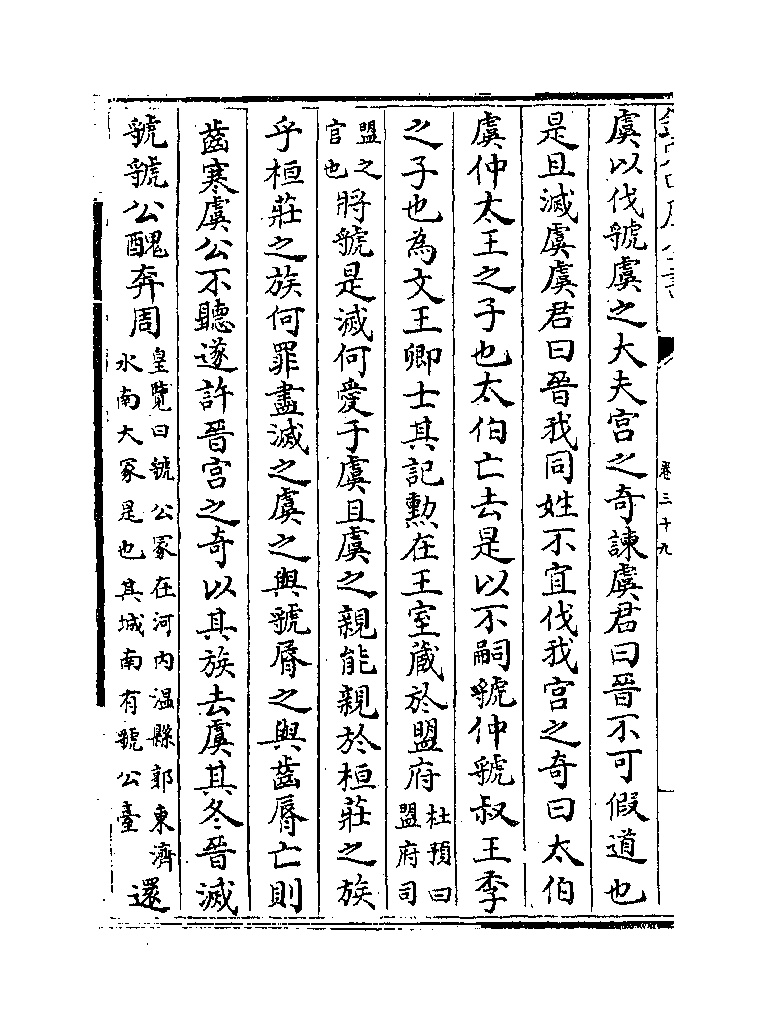 虞以伐虢虞之大夫宫之奇諫虞君曰晉不可假道也
是且滅虞虞君曰晉我同姓不宜伐我宫之奇曰太伯
虞仲太王之子也太伯亡去是以不嗣虢仲虢叔王季
之子也為文王卿士其記勲在王室藏於盟府杜預曰盟府司
盟之官也將虢是滅何愛于虞且虞之親能親於桓莊之族
乎桓莊之族何罪盡滅之虞之與虢脣之與齒脣亡則
齒寒虞公不聽遂許晉宫之奇以其族去虞其冬晉滅
虢虢公醜奔周皇覽曰虢公冢在河内温縣郭東濟水南大冢是也其城南有虢公臺還
卷三十九